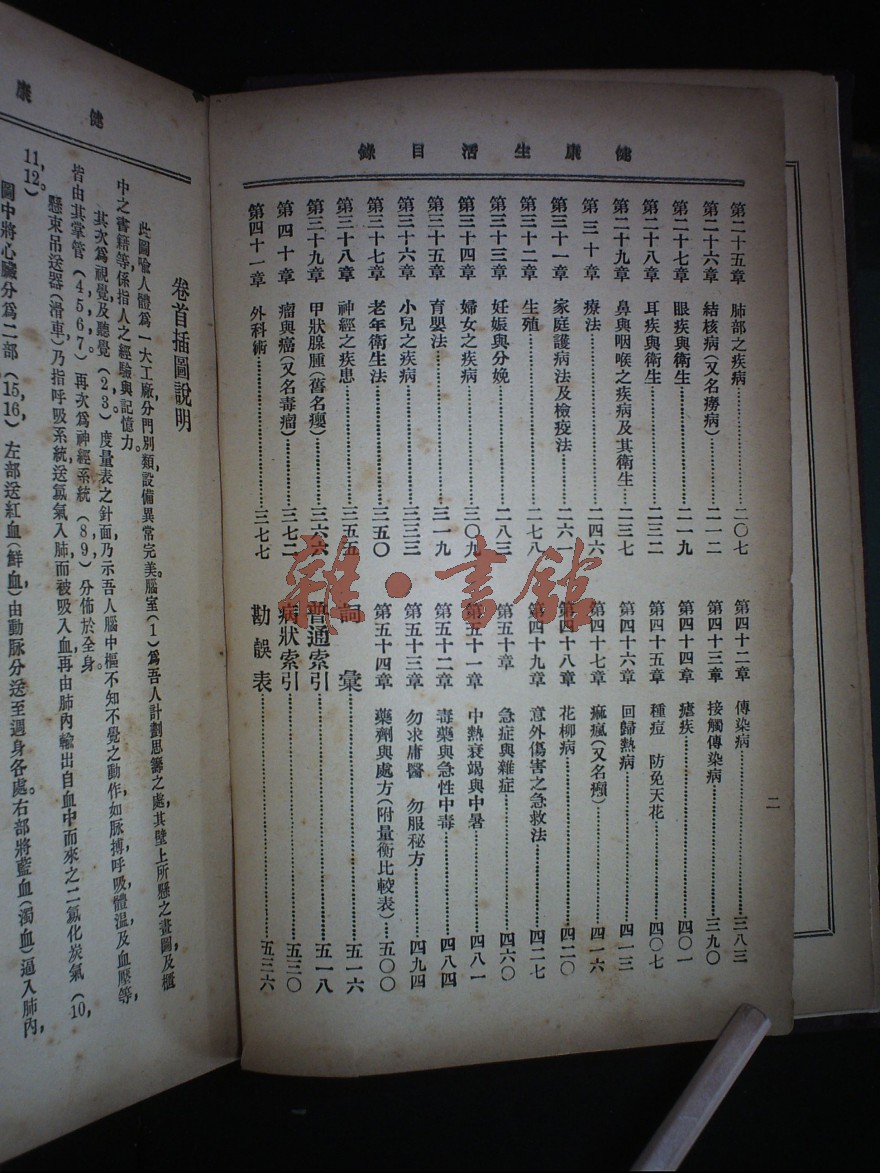 健康生活目錄
第二十五章 肺部之疾病……二〇七
第二十六章 結核病(又名癆病)……二一二
第二十七章 眼疾與衛生……二一九
第二十八章 耳疾與衛生……二三二
第二十九章 鼻與咽喉之疾病及其衛生……二三七
第三十章 療法……二四六
第三十一章 家庭護病法及檢疫法……二六一
第三十二章 生殖……二七八
第三十三章 妊娠與分娩……二八三
第三十四章 婦女之疾病……三〇九
第三十五章 育嬰法……三一九
第三十六章 小兒之疾病……三三三
第三十七章 老年衛生法……三五〇
第三十八章 神經之疾患……三五五
第三十九章 甲狀腺腫(舊名癭)……三六六
第四十章 瘤與癌(又名毒瘤)……三七二
第四十一章 外科術……三七七
第四十二章 傳染病……三八三
第四十三章 接觸傳染病……三九〇
第四十四章 瘧疾……四〇一
第四十五章 種痘 防免天花……四〇七
第四十六章 回歸熱病……四一三
第四十七章 痲瘋(又名癩)……四一六
第四十八章 花柳病……四二〇
第四十九章 意外傷害之急救法……四二七
第五十章 急症與雜症……四六〇
第五十一章 中熱衰竭與中暑……四八一
第五十二章 毒藥與急性中毒……四八四
第五十三章 勿求庸醫 勿服秘方……四九四
第五十四章 藥劑與處方(附量衡比較表)…五〇〇
詞彙……五一六
普通索引……五一八
病狀索引……五三〇
勘誤表……五三六
二
雜·書館
健康
卷首插圖說明
此圖喻人體爲一大工廠,分門別類,設備異常完美。腦室(1)爲吾人計劃思籌之處,其壁上所懸之畫圖及櫃
中之書籍等,係指人之經驗與記憶力。
其次爲視覺及聽覺(2,3)。度量表之針面,乃示吾人腦中樞不知不覺之動作,如脉搏,呼吸,體溫,及血壓等,
皆由其掌管(4,5,6,7)。再次爲神經系統(8,9)分佈於全身。
懸束吊送器(滑車)乃指呼吸系統,送氣氣入肺而被吸入血,再由肺內輸出自血中而來之二氧化炭氣(10,
11,12)。
圖中將心臟分爲二部(15,16),左部送紅血(鮮血)由動脉分送至週身各處。右部將藍血(濁血)逼入肺內,